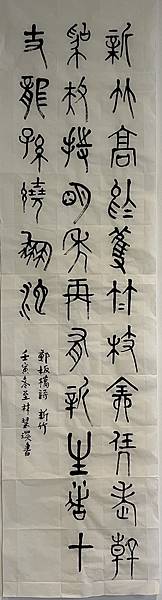 新竹高於舊竹枝全憑老幹
為扶持明年再有新生者十
丈龍孫繞鳳池
鄭板橋詩 新竹
壬寅冬至林書